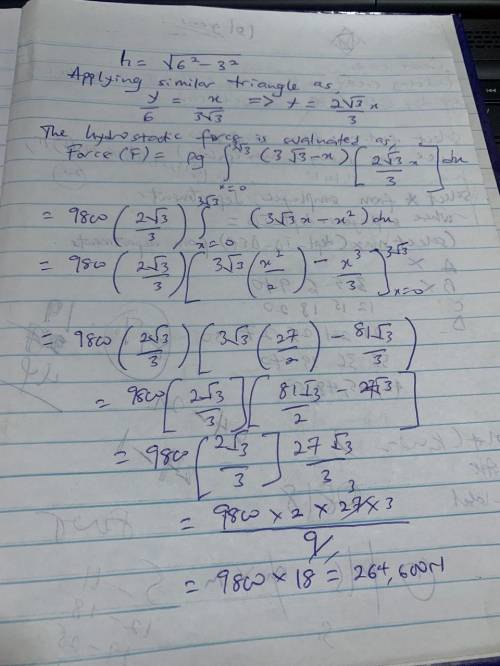 h = √6² - 3²
Applying similar triangle as,
y/6 = x/3√3 => y = 2√3/3 x
The hydrostatic force is evaluated as,
Force (F) = ρg ∫_{x=0}^{3√3} (3√3 - x) [2√3/3 x] dx
= 9800 (2√3/3) ∫_{x=0}^{3√3} (3√3x - x²) dx
= 9800 (2√3/3) [3√3 (x²/2) - x³/3]_{x=0}^{3√3}
= 9800 (2√3/3) [3√3 (27/2) - 81√3/3]
= 9800 [2√3/3] [81√3/2 - 27√3]
= 9800 [2√3/3] 27√3/3
= 9800 × 2 × 27 3 × 3 / 9
= 9800 × 18 = 264,600N